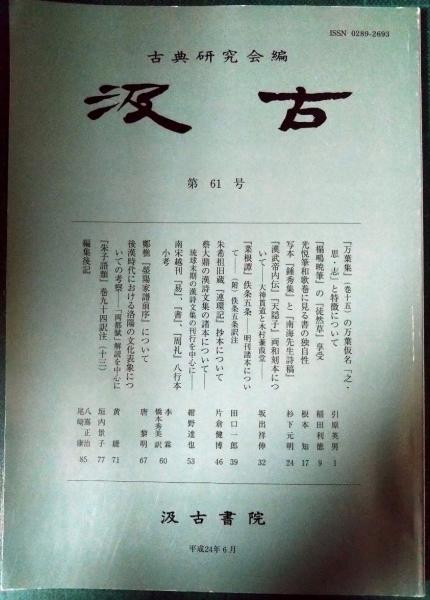 ISSN 0289-2693
古典研究会編
汲古
第 61 号
『万葉集』(巻十五)の万葉仮名「之・
思・志」と特徴について 引原英男 1
『榻鴫暁筆』の『徒然草』享受 稲田利徳 9
光悦筆和歌巻に見る書の独自性 根本 知 17
写本『鍾秀集』と『南海先生詩稿』 杉下元明 24
『漢武帝内伝』『天隠子』両和刻本につ
いて――大神貫道と木村蒹葭堂―― 坂出祥伸 32
『菜根譚』佚条五条――明刊諸本につい
て――(附)佚条五条訳注 田口一郎 39
朱希祖旧蔵『連環記』抄本について 片倉健博 46
蔡大鼎の漢詩文集の諸本について――
琉球末期の漢詩文集の刊行を中心に―― 紺野達也 53
南宋越刊『易』『書』『周礼』八行本
小考 李 霖 橋本秀美 訳 60
鄭樵『滎陽家譜前序』について 唐 黎明 67
後漢時代における洛陽の文化表象につ
いての考察――「両都賦」解説を中心に 黄 71
『朱子語類』巻九十四訳注(十三) 垣内景子 77
編集後記 八嶌正治 尾崎 康 85
汲古書院
平成24年6月